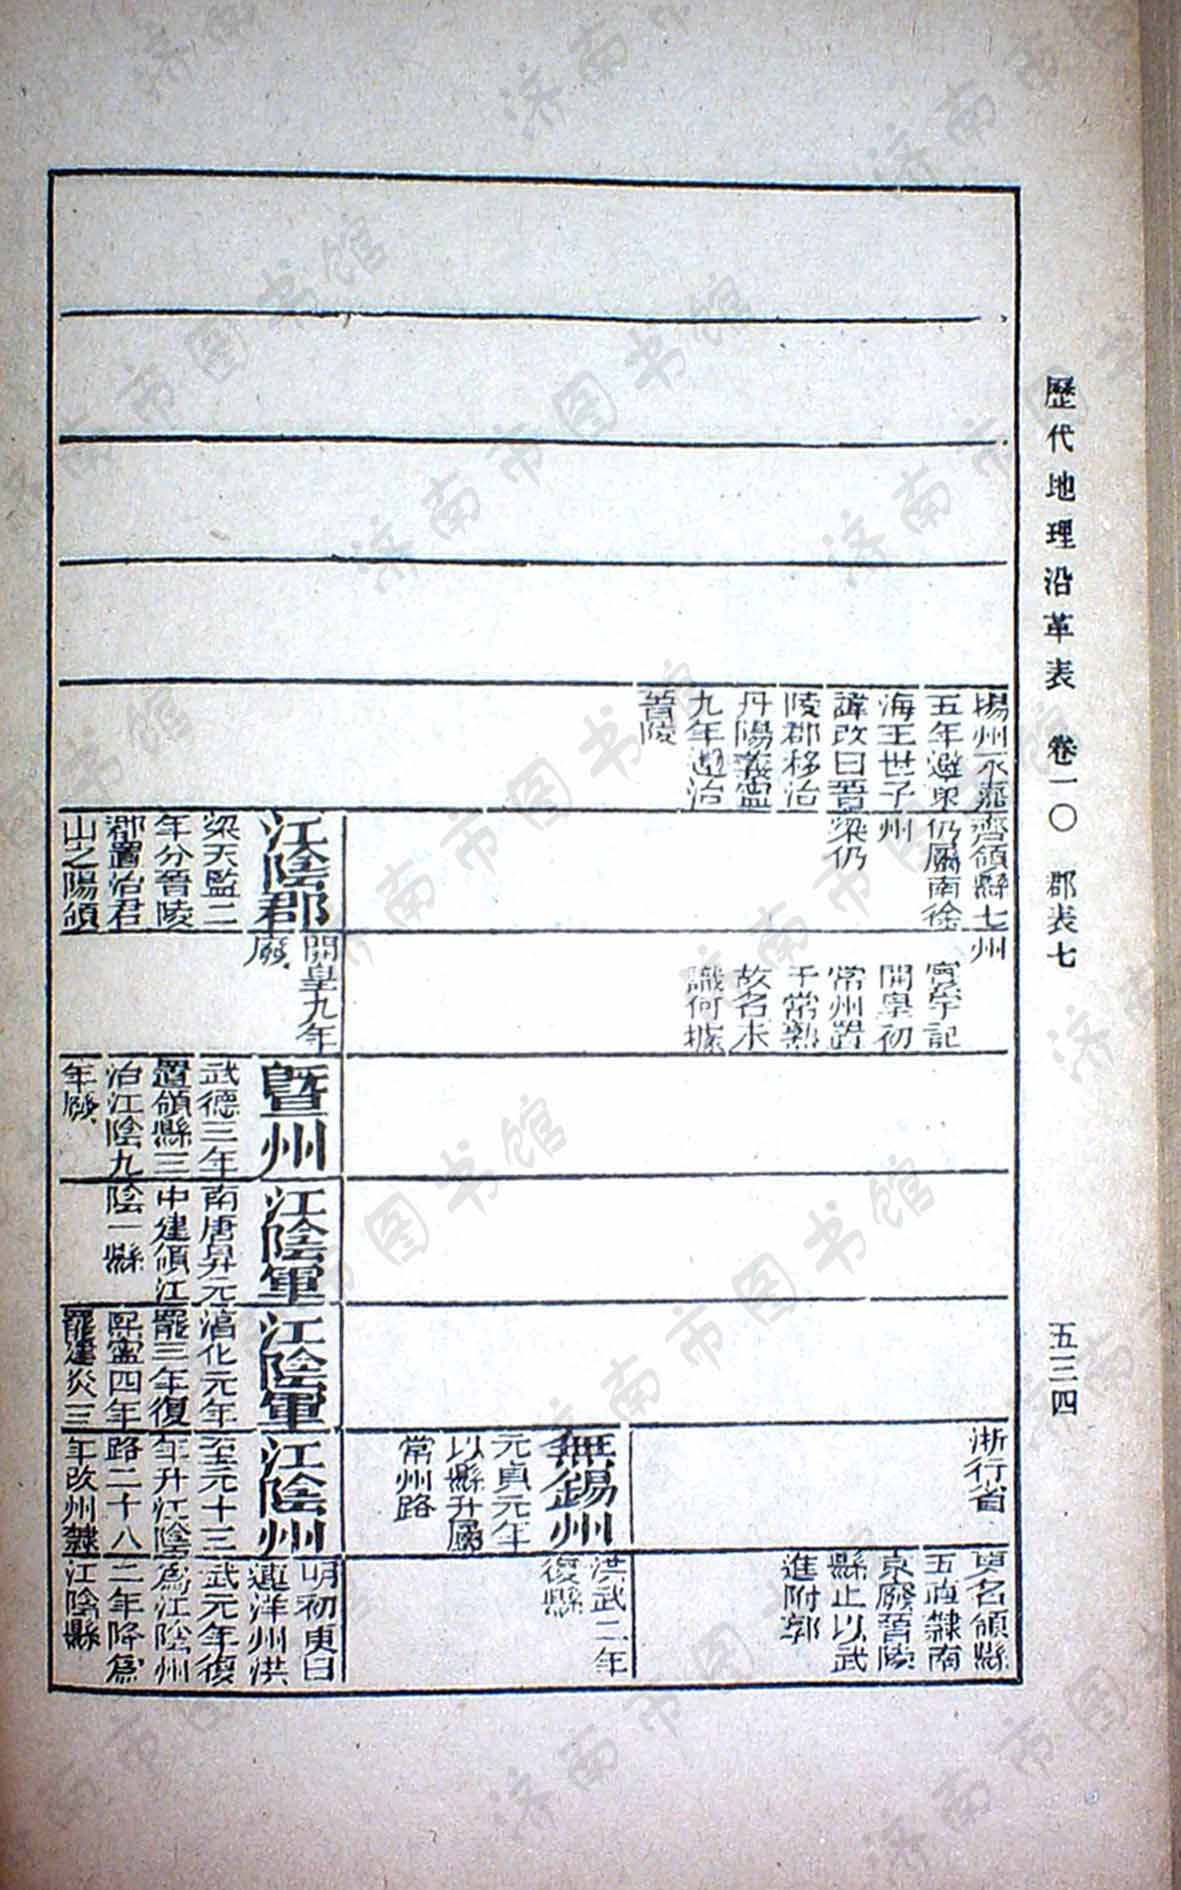 歷代地理沿革表 卷一〇 郡表七
五三四
揚州永嘉
五年避東
海王世子
諱改曰晉
陵郡移治
丹陽義寧
九年還治
晉陵
齊領縣七
仍屬南徐
州
梁仍
江陰郡
梁天監二
年分晉陵
郡置治君
山之陽領
州
寰宇記
開皇初
常州置
于常熟
故名未
識何據
開皇九年
廢
暨州
武德三年
置領縣三
治江陰九
年廢
江陰軍
南唐昇元
中建領江
陰一縣
江陰軍
淳化元年
罷三年復
熙寧四年
罷建炎三
浙行省
無錫州
元貞元年
以縣升屬
常州路
江陰州
至元十三
年升江陰
路二十八
年改州隸
更名領縣
五直隸南
京廢晉陵
縣止以武
進附郭
洪武二年
復縣
明初更曰
連洋州洪
武元年復
為江陰州
二年降為
江陰縣
济南市图书馆